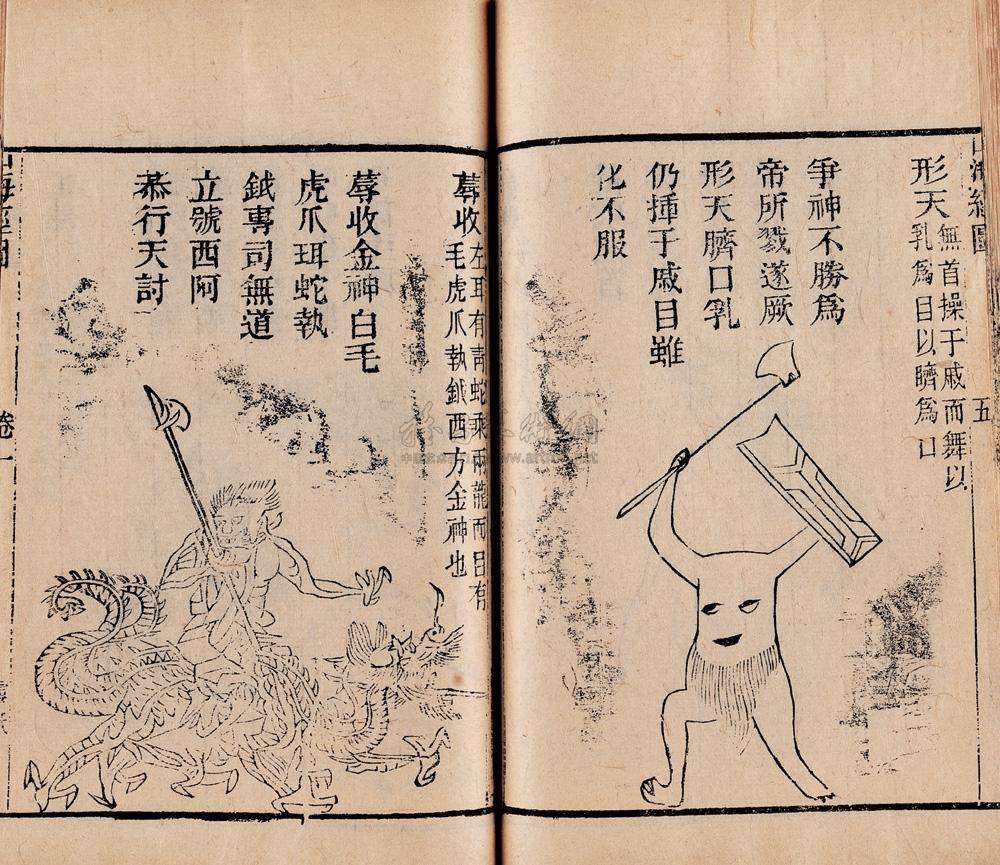 山海經圖
五
形天 無首操干戚而舞以
乳爲目以臍爲口
爭神不勝爲
帝所戮遂厥
形天臍口乳
仍揮干戚目雖
化不服
蓐收 左耳有青蛇乘兩龍而目有
毛虎爪執鉞西方金神也
蓐收金神白毛
虎爪珥蛇執
鉞專司無道
立號西阿
恭行天討
山海經圖
卷一